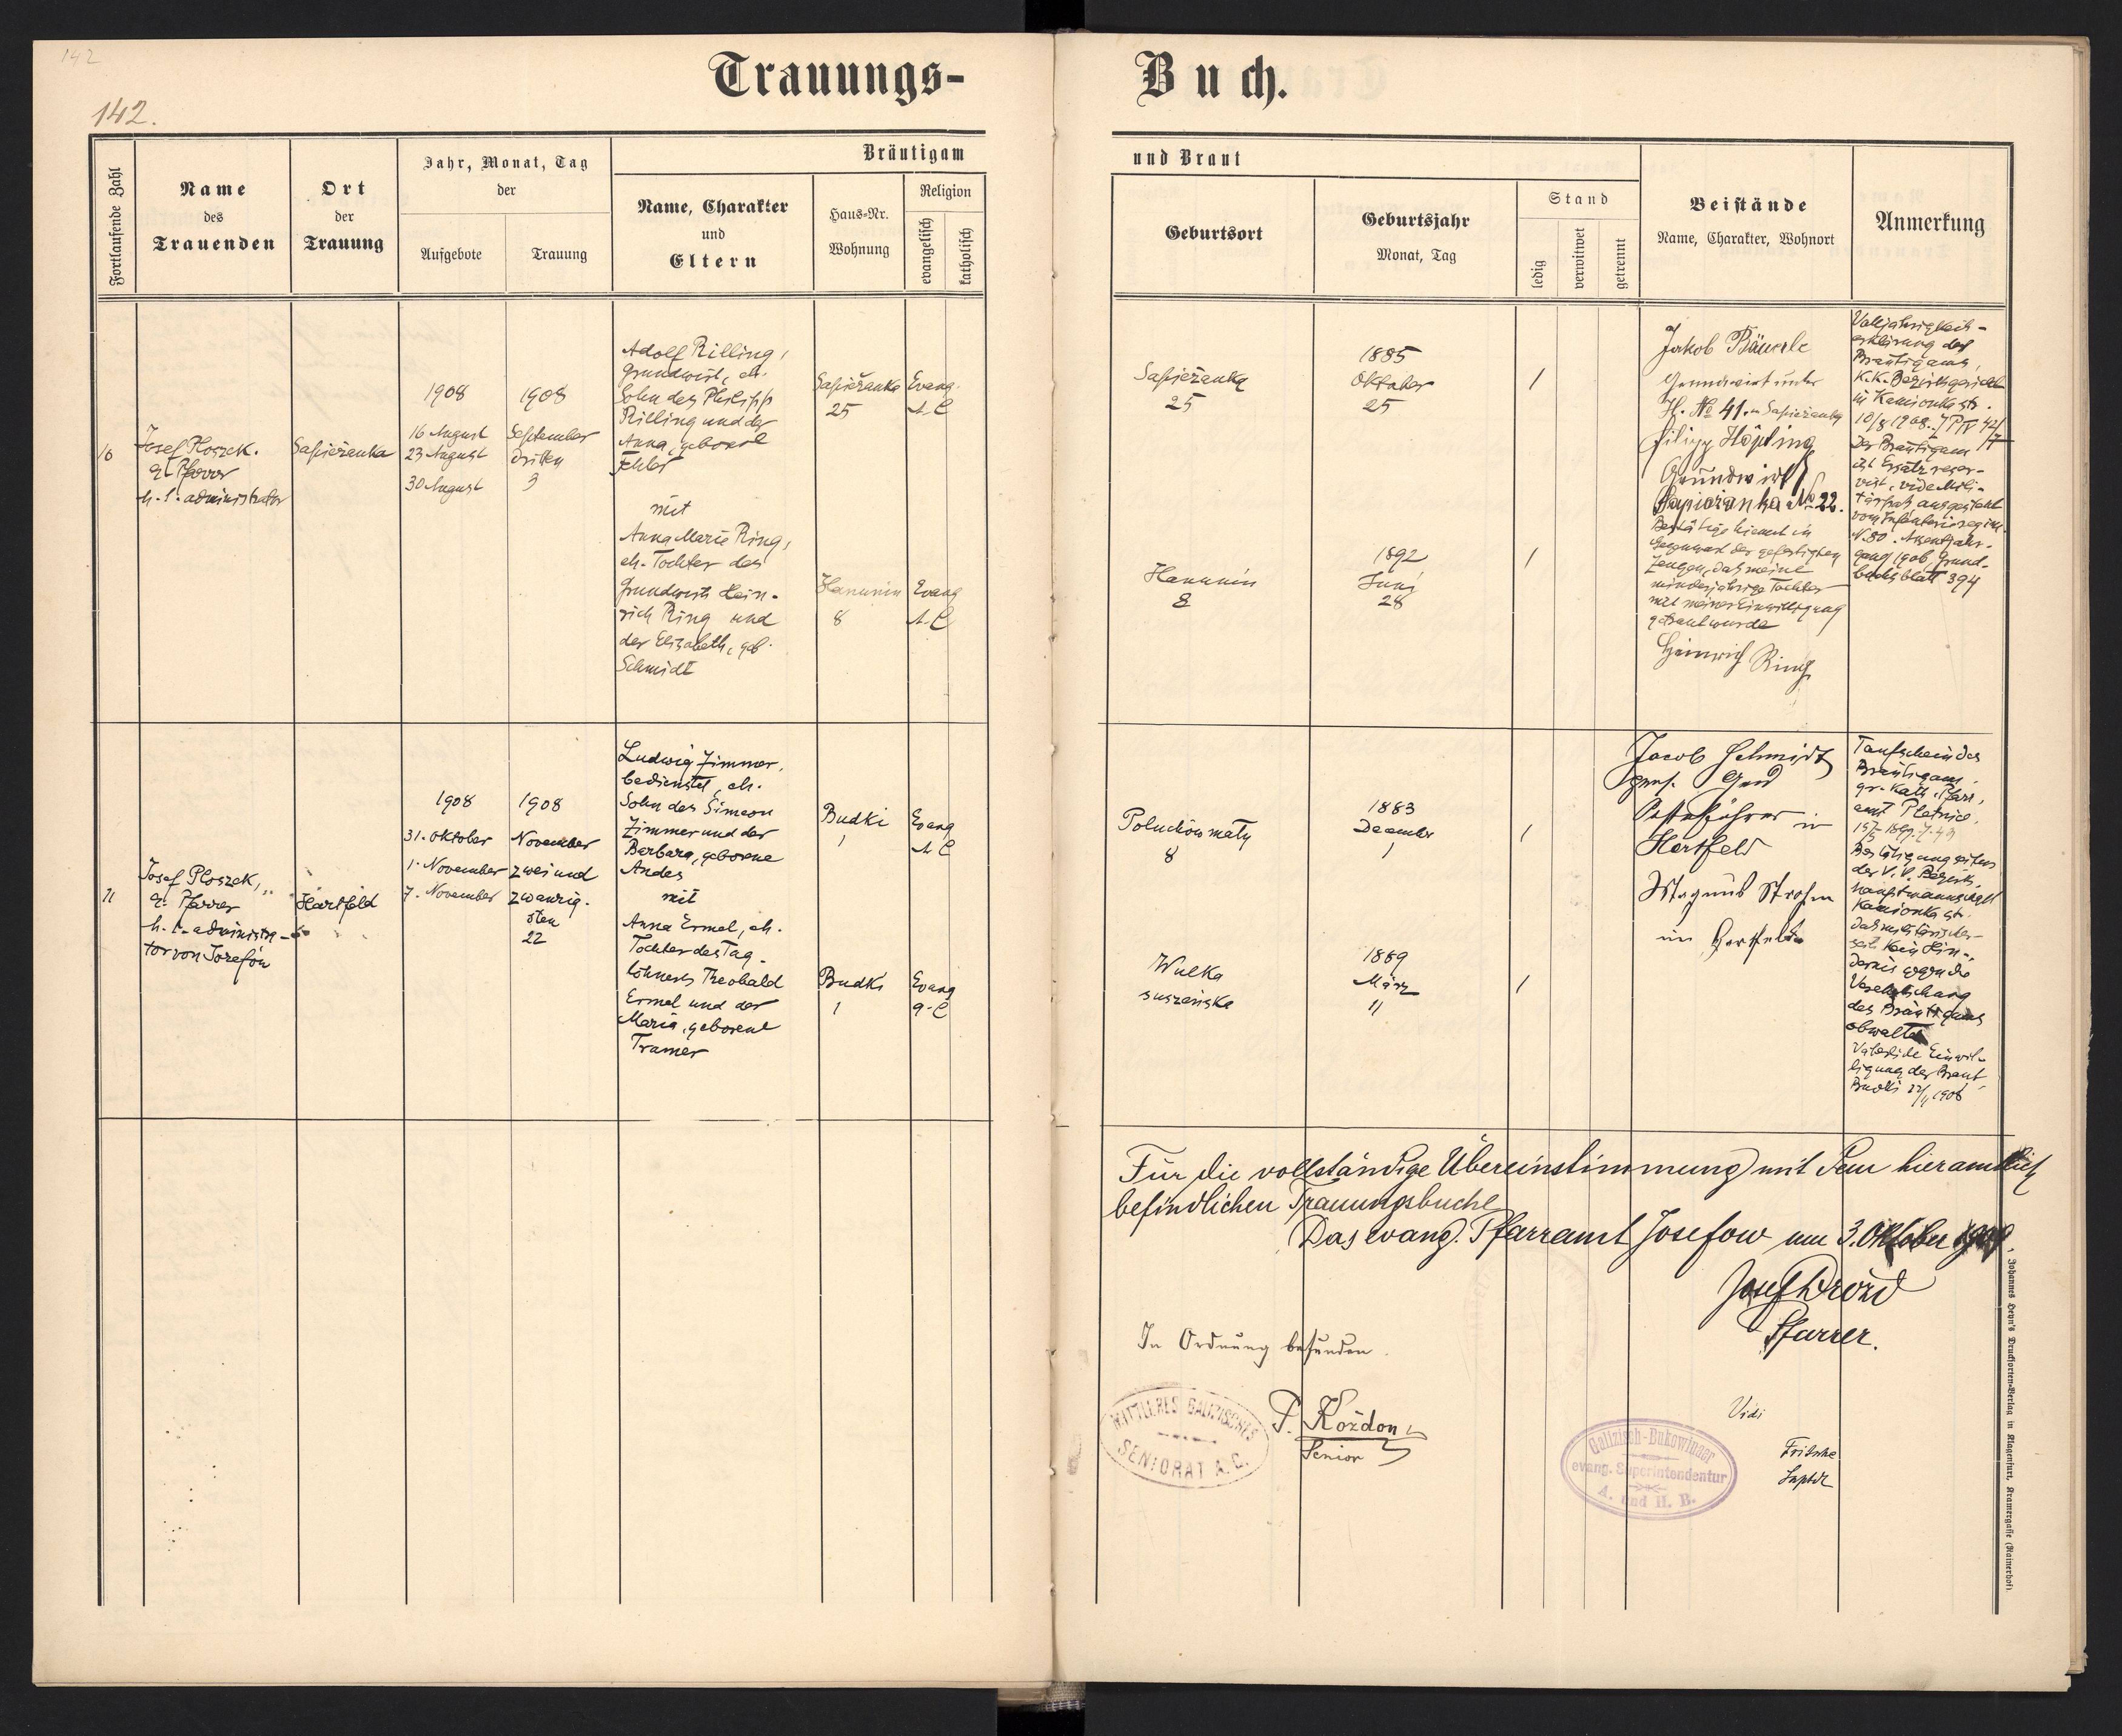 142
142.
Trauungs-
Buch.
Fortlaufende Zahl
Name
des
Trauenden
Ort
der
Trauung
Jahr, Monat, Tag
der
Aufgebote
Trauung
Bräutigam
Name, Charakter
und
Eltern
Haus-Nr.
Wohnung
Religion
evangelisch
katholisch
und Braut
Geburtsort
Geburtsjahr
Monat, Tag
Stand
ledig
verwitwet
getrennt
Beistände
Name, Charakter, Wohnort
Anmerkung
10
Josef Ploszek.
ev. Pfarrer
h. t. administrator
Sapieżanka
1908
16 August
23 August
30 August
1908
September
dritten
3
Adolf Rilling,
Grundwirt, eh.
Sohn des Philipp
Rilling und der
Anna, geborene
mit
Anna Marie Ring,
eh. Tochter des
Grundwirts Hein-
rich Ring und
der Elisabeth, geb.
Schmidt
Sapieżanka
25
Evang.
A. C
Hanunin
8
Evang
A. C
Sapieżanka
25
1885
Oktober
25
/
Hanunin
8
1892
Juni
28
/
Jakob Bäuerle
Grundwirt unter
H. No 41. in Sapieżanka
Filipp Höpfing
Grundwirt
Sapieżanka No 22.
Bestätige hiemit in
Gegenwart der gefertigten
Zeugen, daß meine
minderjährige Tochter
mit meiner Einwilligung
getraut wurde
Heinrich Ring
Volljährigkeits-
erklärung des
Bräutigams,
K.K. Bezirksgericht
in Kamionka str.
10/8 1908.
Der Bräutigam
ist Ersatzreser-
vist, vide Mili-
tärpaß ausgestellt
vom Infanterieregim.
N. 80. Assentjahr-
gang 1906, Grund-
buchsblatt 394
11
Josef Ploszek,
ev. Pfarrer
h. t. administra-
tor von Josefów
Hartfeld
1908
31. Oktober
1. November
7. November
1908
November
zwei und
zwanzig-
sten
22
Ludwig Zimmer,
bedienstet, eh.
Sohn des Simeon
Zimmer und der
Barbara, geborene
Andes
mit
Anna Ermel, eh.
Tochter des Tag-
löhners Theobald
Ermel und der
Maria, geborene
Tramer
Budki
1
Evang
A. C
Budki
1
Evang
A. C
Poluchów mały
8
1883
December
1
/
Wulka
suszańska
1889
März
11
/
Jacob Schmidt
pens. Gend
Postenführer in
Hartfeld
Magnus Strohm
in Hartfeld
Taufschein des
Bräutigams.
gr. Kath. Pfarr-
amt Pletnice.
Bestätigung seitens
der K. K. Bezirks-
hauptmannschaft
Kamionka str.
daß militärischer-
seits kein Hin-
dernis gegen die
Verehelichung
des Bräutigams
obwaltet
Väterliche Einwil-
ligung der Braut,
Budki 22/11 1908
Für die vollständige Übereinstimmung mit dem hieramtlich
befindlichen Trauungsbuche
Das evang. Pfarramt Josefow am 3. Oktober
Josef Drozd
Pfarrer.
In Ordnung befunden.
MITTLERES GALIZISCHES
SENIORAT A. C.
P. Kożdon
Senior
Vidi
Galizisch-Bukowinaer
evang. Superintendentur
A. und H. B.
Fritsche
Suptdt
Johannes Heyn's Drucksorten-Verlag in Klagenfurt, Kramergasse (Rainerhof).